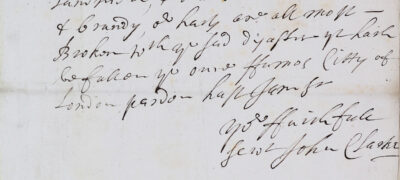 & brandy, or harts are all most –
Broken with ye sad disaster yt hath
befallen ye once ffamos Citty of
London pardon hast I am Sr
Yor ffaithfull
Servt John Clarke